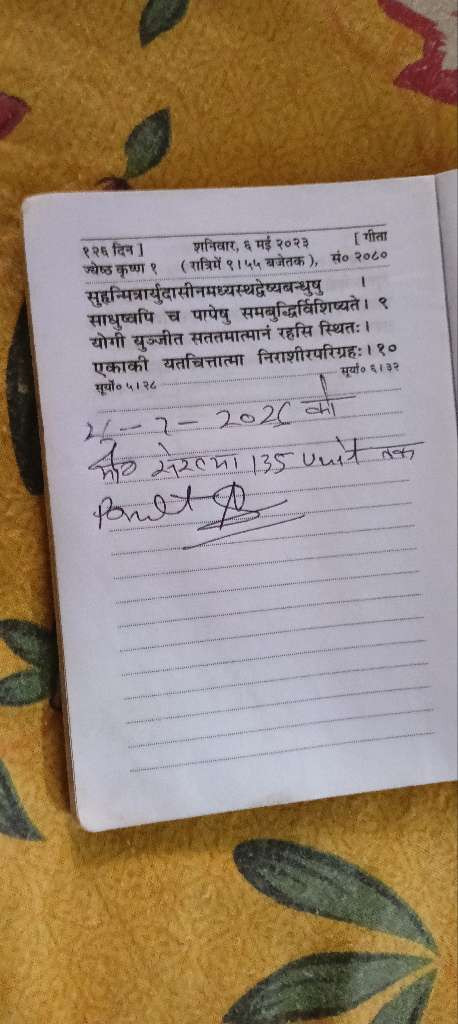 १२६ दिन ] शनिवार, ६ मई २०२३ [ गीता
ज्येष्ठ कृष्ण १ ( रात्रिमें ९।५५ बजेतक ), सं० २०८०
सुहृन्मित्रार्युदासीनमध्यस्थद्वेष्यबन्धुषु ।
साधुष्वपि च पापेषु समबुद्धिर्विशिष्यते। ९
योगी युञ्जीत सततमात्मानं रहसि स्थितः।
एकाकी यतचित्तात्मा निराशीरपरिग्रहः।१०
सूर्यो० ५।२८ सूर्या० ६।३२
को
135 Unit तक